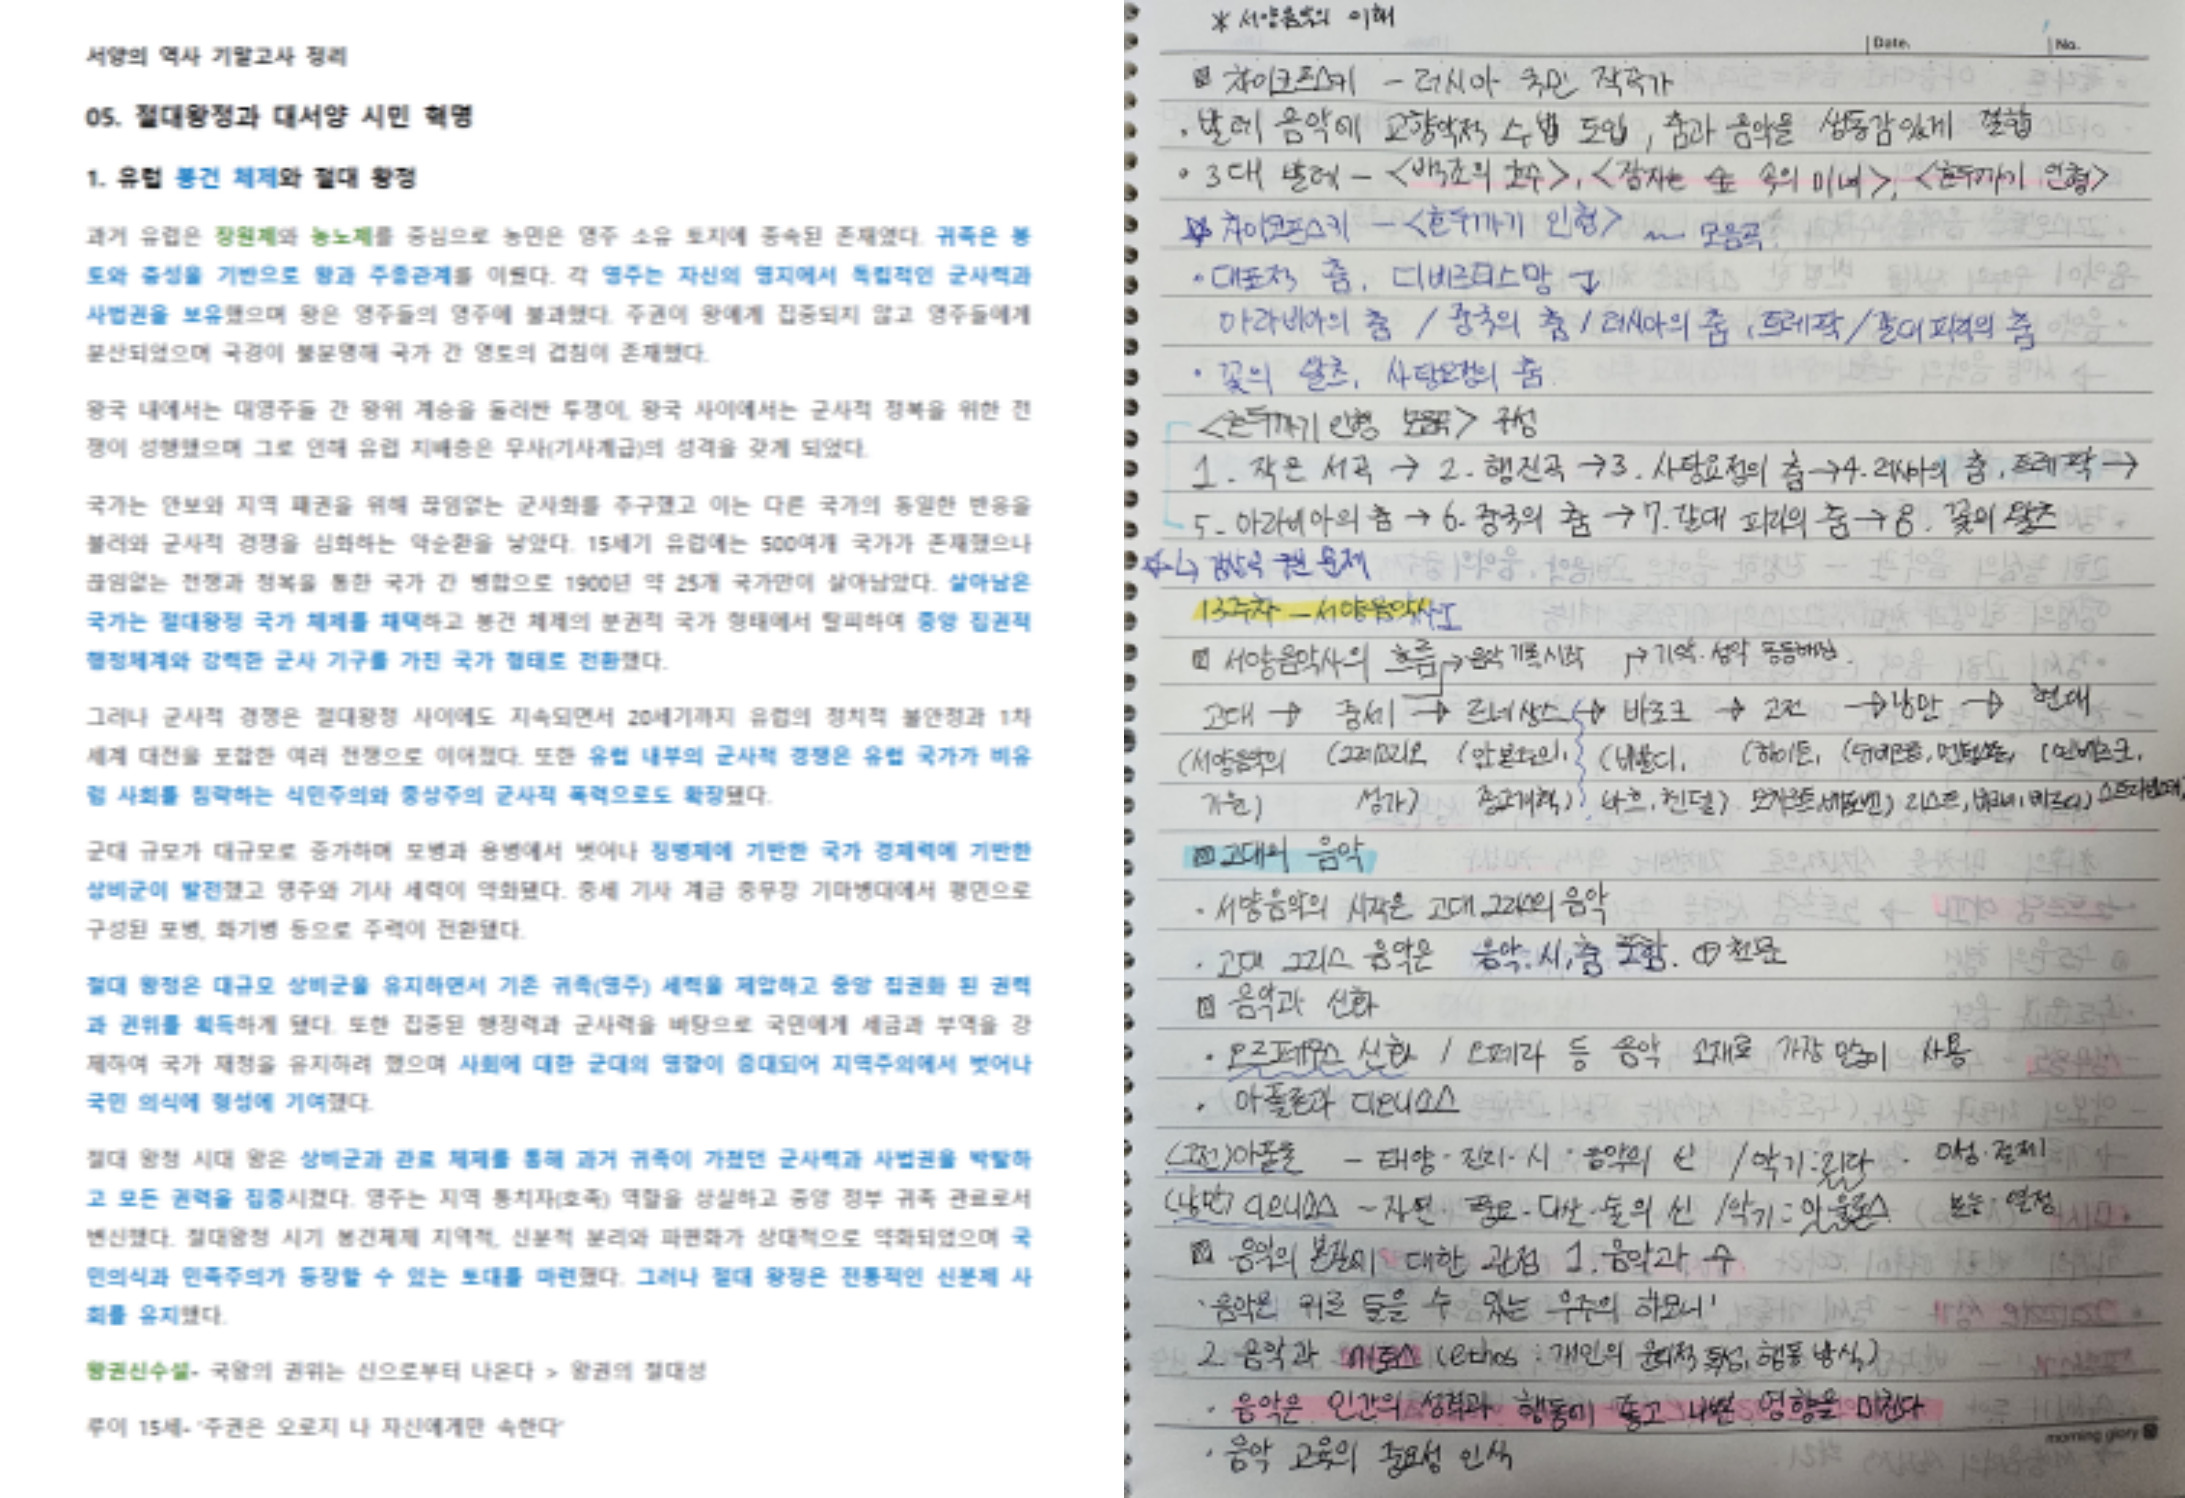 서양의 역사 기말고사 정리
05. 절대왕정과 대서양 시민 혁명
1. 유럽 봉건 체제와 절대 왕정
과거 유럽은 장원제와 농노제를 중심으로 농민은 영주 소유 토지에 종속된 존재였다. 귀족은 봉
토와 충성을 기반으로 왕과 주종관계를 이뤘다. 각 영주는 자신의 영지에서 독립적인 군사력과
사법권을 보유했으며 왕은 영주들의 영주에 불과했다. 주권이 왕에게 집중되지 않고 영주들에게
분산되었으며 국경이 불분명해 국가 간 영토의 겹침이 존재했다.
왕국 내에서는 대영주들 간 왕위 계승을 둘러싼 투쟁이, 왕국 사이에서는 군사적 정복을 위한 전
쟁이 성행했으며 그로 인해 유럽 지배층은 무사(기사계급)의 성격을 갖게 되었다.
국가는 안보와 지역 패권을 위해 끊임없는 군사화를 추구했고 이는 다른 국가의 동일한 반응을
불러와 군사적 경쟁을 심화하는 악순환을 낳았다. 15세기 유럽에는 500여개 국가가 존재했으나
끊임없는 전쟁과 정복을 통한 국가 간 병합으로 1900년 약 25개 국가만이 살아남았다. 살아남은
국가는 절대왕정 국가 체제를 채택하고 봉건 체제의 분권적 국가 형태에서 탈피하여 중앙 집권적
행정체계와 강력한 군사 기구를 가진 국가 형태로 전환했다.
그러나 군사적 경쟁은 절대왕정 사이에도 지속되면서 20세기까지 유럽의 정치적 불안정과 1차
세계 대전을 포함한 여러 전쟁으로 이어졌다. 또한 유럽 내부의 군사적 경쟁은 유럽 국가가 비유
럽 사회를 침략하는 식민주의와 중상주의 군사적 폭력으로도 확장됐다.
군대 규모가 대규모로 증가하며 모병과 용병에서 벗어나 징병제에 기반한 국가 경제력에 기반한
상비군이 발전했고 영주와 기사 세력이 약화됐다. 중세 기사 계급 중무장 기마병대에서 평민으로
구성된 포병, 화기병 등으로 주력이 전환됐다.
절대 왕정은 대규모 상비군을 유지하면서 기존 귀족(영주) 세력을 제압하고 중앙 집권화 된 권력
과 권위를 획득하게 됐다. 또한 집중된 행정력과 군사력을 바탕으로 국민에게 세금과 부역을 강
제하여 국가 재정을 유지하려 했으며 사회에 대한 군대의 영향이 증대되어 지역주의에서 벗어나
국민 의식에 형성에 기여했다.
절대 왕정 시대 왕은 상비군과 관료 체제를 통해 과거 귀족이 가졌던 군사력과 사법권을 박탈하
고 모든 권력을 집중시켰다. 영주는 지역 통치자(호족) 역할을 상실하고 중앙 정부 귀족 관료로서
변신했다. 절대왕정 시기 봉건체제 지역적, 신분적 분리와 파편화가 상대적으로 약화되었으며 국
민의식과 민족주의가 등장할 수 있는 토대를 마련했다. 그러나 절대 왕정은 전통적인 신분제 사
회를 유지했다.
왕권신수설- 국왕의 권위는 신으로부터 나온다 > 왕권의 절대성
루이 15세- '주권은 오로지 나 자신에게만 속한다'
* 서양음악의 이해
Date. No.
차이코프스키 - 러시아 국민 작곡가
· 발레 음악에 교향악적 수법 도입, 춤과 음악을 생동감있게 결합
· 3대 발레 - <백조의 호수>, <잠자는 숲 속의 미녀>, <호두까기 인형>
차이코프스키 - <호두까기 인형> ~ 모음곡
· 대표적 춤, 디베르티스망 ↓
아라비아의 춤 / 중국의 춤 / 러시아의 춤, 트레팍 / 갈대피리의 춤
· 꽃의 왈츠, 사탕요정의 춤
<호두까기 인형 모음곡> 구성
1. 작은 서곡 → 2. 행진곡 → 3. 사탕요정의 춤 → 4. 러시아의 춤, 트레팍 →
5. 아라비아의 춤 → 6. 중국의 춤 → 7. 갈대 피리의 춤 → 8. 꽃의 왈츠
↳ 감상곡 관련 문제
13주차 - 서양음악사Ⅰ
서양음악사의 흐름 → 음악 기록 시작 → 기악·성악 동등해짐.
고대 → 중세 → 르네상스 → 바로크 → 고전 → 낭만 → 현대
(서양음악의 (그레고리오 (악보출현, (비발디, (하이든, (슈베르트, 멘델스존, (쇤베르크,
기원) 성가) 종교개혁) 바흐, 헨델) 모차르트, 베토벤) 리스트, 바그너, 베르디) 스트라빈스키)
고대의 음악
· 서양음악의 시작은 고대 그리스의 음악
· 고대 그리스 음악은 음악, 시, 춤 포함. ⊕ 천문
음악과 신화
· 오르페우스 신화 / 오페라 등 음악 소재로 가장 많이 사용
· 아폴론과 디오니소스
(고전) 아폴론 - 태양·진리·시·음악의 신 / 악기: 리라 · 이성·절제
(낭만) 디오니소스 - 자연·풍요·다산·술의 신 / 악기: 아울로스 본능·열정
음악의 본질에 대한 관점 1. 음악과 수
'음악은 귀로 들을 수 있는 우주의 하모니'
2. 음악과 에토스 (ethos : 개인의 윤리적 특성, 행동 방식)
· 음악은 인간의 성격과 행동에 좋고 나쁜 영향을 미친다
· 음악 교육의 중요성 인식
morning glory